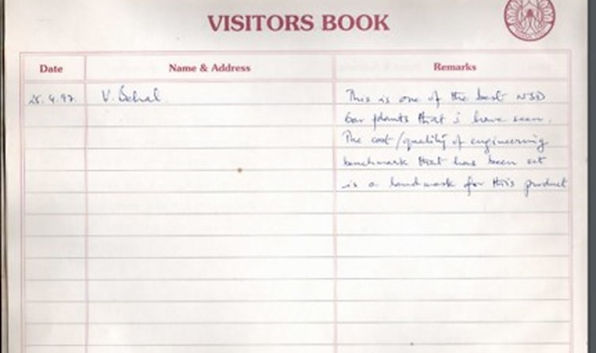 VISITORS BOOK
Date
Name & Address
Remarks
25.4.97
V. Behal
This is one of the best NSD
bar plants that i have seen.
The cost/quality of engineering
benchmark that has been set
is a landmark for this product